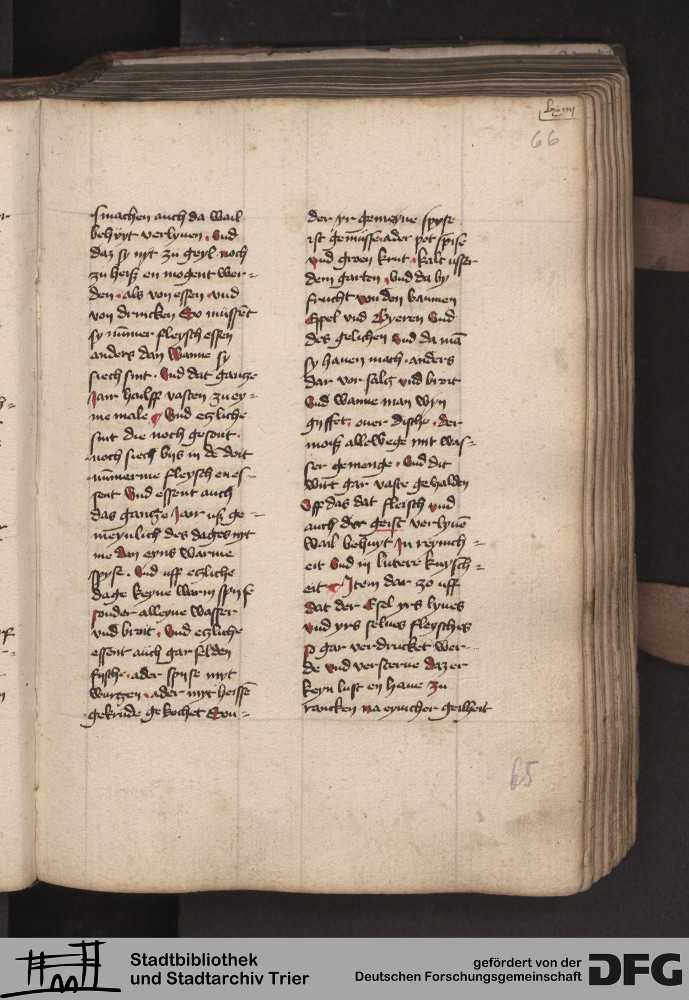 lxvıııı
66
smachen auch da wail
behuyt verlynen . Vnd
daz sy nyt zu geyl noch
zu heiß en mogent wer-
den . als von essen . vnd
von drincken So müssēt
sy nümer fleysch essen
anders dan wanne sy
siech sint . Vnd dat gantze
Jair hailff vasten zu ey-
me male Vnd etzliche
sint die noch gesont .
noch siech bys in dē doit
nümerme fleysch en es-
sent Vnd essent auch
das gantze Jair uß ge-
meynlich des dages nyt
me dan eyns warme
spyse . Vnd uff etzliche
dage keyne warm spyse
sonder alleyne wasser
vnd broit . Vnd etzliche
essent auch gar selden
fysche . ader spyse myt
wurtzen . ader myt heissē
gekrude gekochet Son-
der yr gemeyne spyse
ist gemüsse . ader pot spise
vnd groen krut . kalt usser
dem garten . Vnd da by
frucht von den baumen
Epel vnd Byeren Vnd
des gelichen Vnd da mā
sy hauen mach . anders
dar vor saltz vnd broit
Vnd wanne man wyn
gyffet ouer dische . der
moiß allewege mit was-
ser gemenge . Vnd dit
wirt gar vaste gehalden
Vff das dat fleisch vnd
auch der geist verlynē
wail behuyt In reynich-
eit Vnd in luterr kuysch-
eit Item dar zo uff
dat der Esel yrs lyues
vnd yrs selues fleysches
so gar verdrucket wer-
de vnd versterue daz er
keyn lust en haue zu
rancken na eynicher geilheit
65
Stadtbibliothek
und Stadtarchiv Trier
gefördert von der
Deutschen Forschungsgemeinschaft
DFG